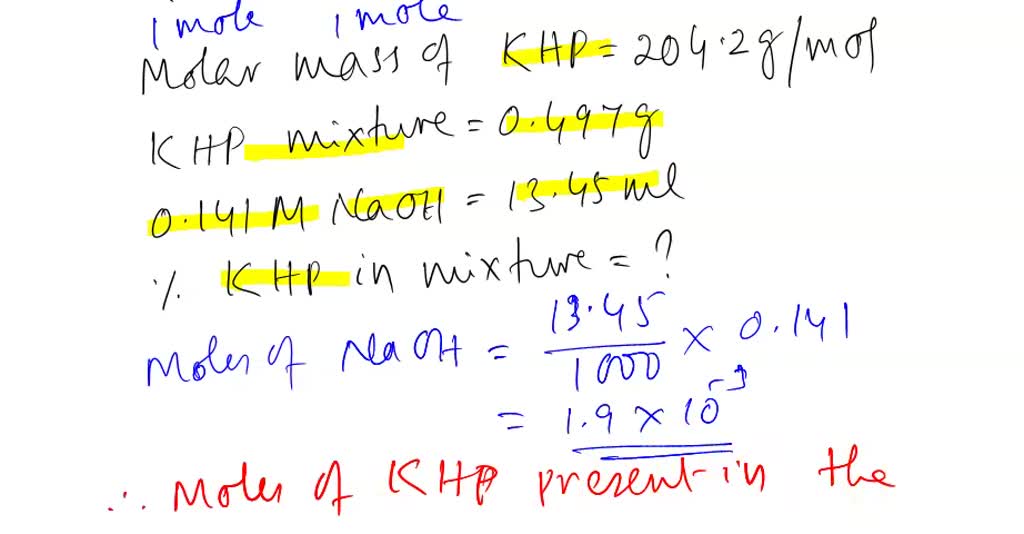 1 mole 1 mole
Molar mass of KHP = 204.2g/mol
KHP mixture = 0.497g
0.141 M NaOH = 13.45 ml
% KHP in mixture = ?
Moles of NaOH = 13.45/1000 × 0.141
= 1.9 × 10⁻³
∴ Moles of KHP present in the